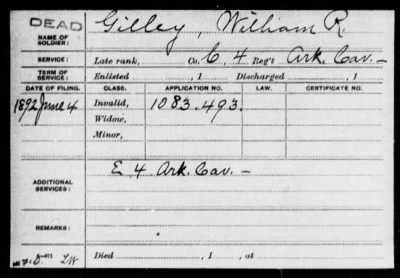 DEAD
NAME OF SOLDIER: Gilley, William R.
SERVICE: Late rank, Co. C, 4 Reg't Ark. Cav. -
TERM OF SERVICE: Enlisted , 1 Discharged , 1
DATE OF FILING. CLASS. APPLICATION NO. LAW. CERTIFICATE NO.
1892 June 4 Invalid, 1083.493.
Widow,
Minor,
ADDITIONAL SERVICES: E 4 Ark. Cav. -
REMARKS:
Died , 1 , at